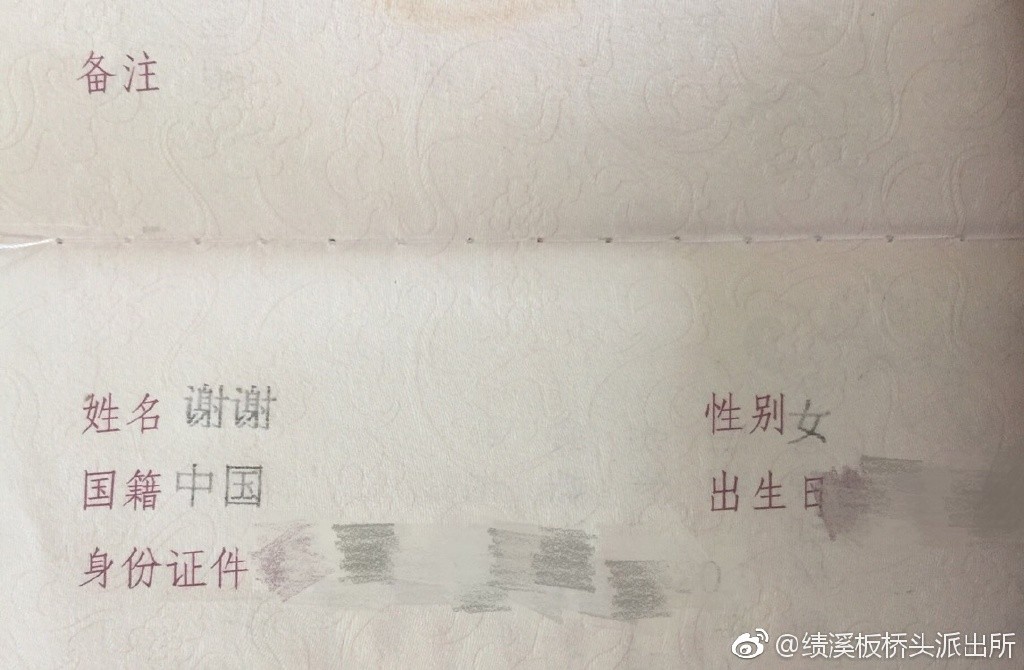 备注
姓名 谢谢 性别 女
国籍 中国 出生日
身份证件
@绩溪板桥头派出所